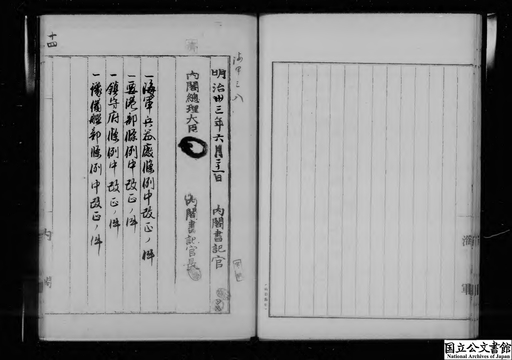 明治卅三年六月三日
内閣書記官
内閣總理大臣
内閣書記官長
一海軍兵器廠條例中改正ノ件
一要港部條例中改正ノ件
一鎮守府條例中改正ノ件
一豫備艦部條例中改正ノ件
十四
内閣
海軍
国立公文書館
National Archives of Japan